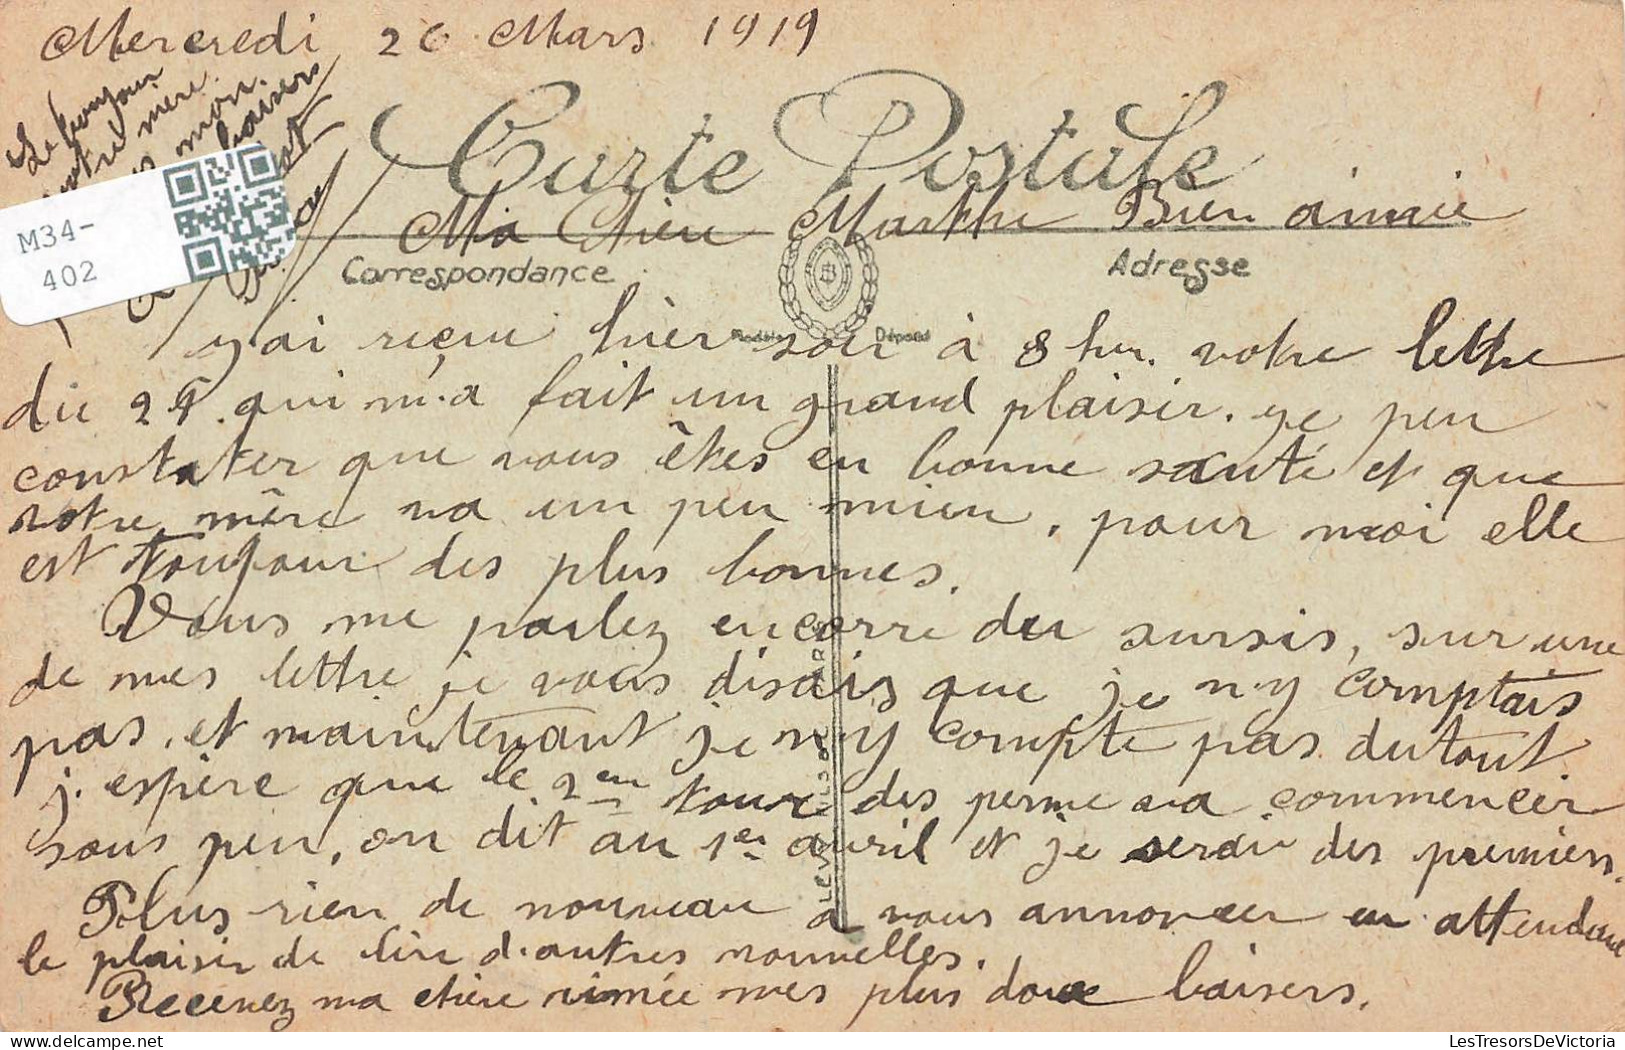 Mercredi 26 Mars 1919
Le bonjour
votre mère
mon.
baisers
M34-
402
Carte Postale
Ma Chère Marthe Bien aimée
Correspondance
Adresse
Modèle Déposé
j'ai reçue hier soir à 8 hrs. votre lettre
du 21. qui m'a fait un grand plaisir. je peu
constater que vous êtes en bonne santé et que
votre mère va un peu mieu. pour moi elle
est toujour des plus bonnes.
Vous me parlez encorre du sursis, sur une
de mes lettre je vous disais que je n'y comptais
pas. et maintenant je n'y compte pas du tout.
j'espère que le 2em tour des perme va commencer
sous peu, on dit au 1er avril et je serai des premiers.
Plus rien de nouveau a vous annoncer en attendant
le plaisir de lire d'autres nouvelles.
Recevez ma chère aimée mes plus doux baisers.
LesTresorsDeVictoria